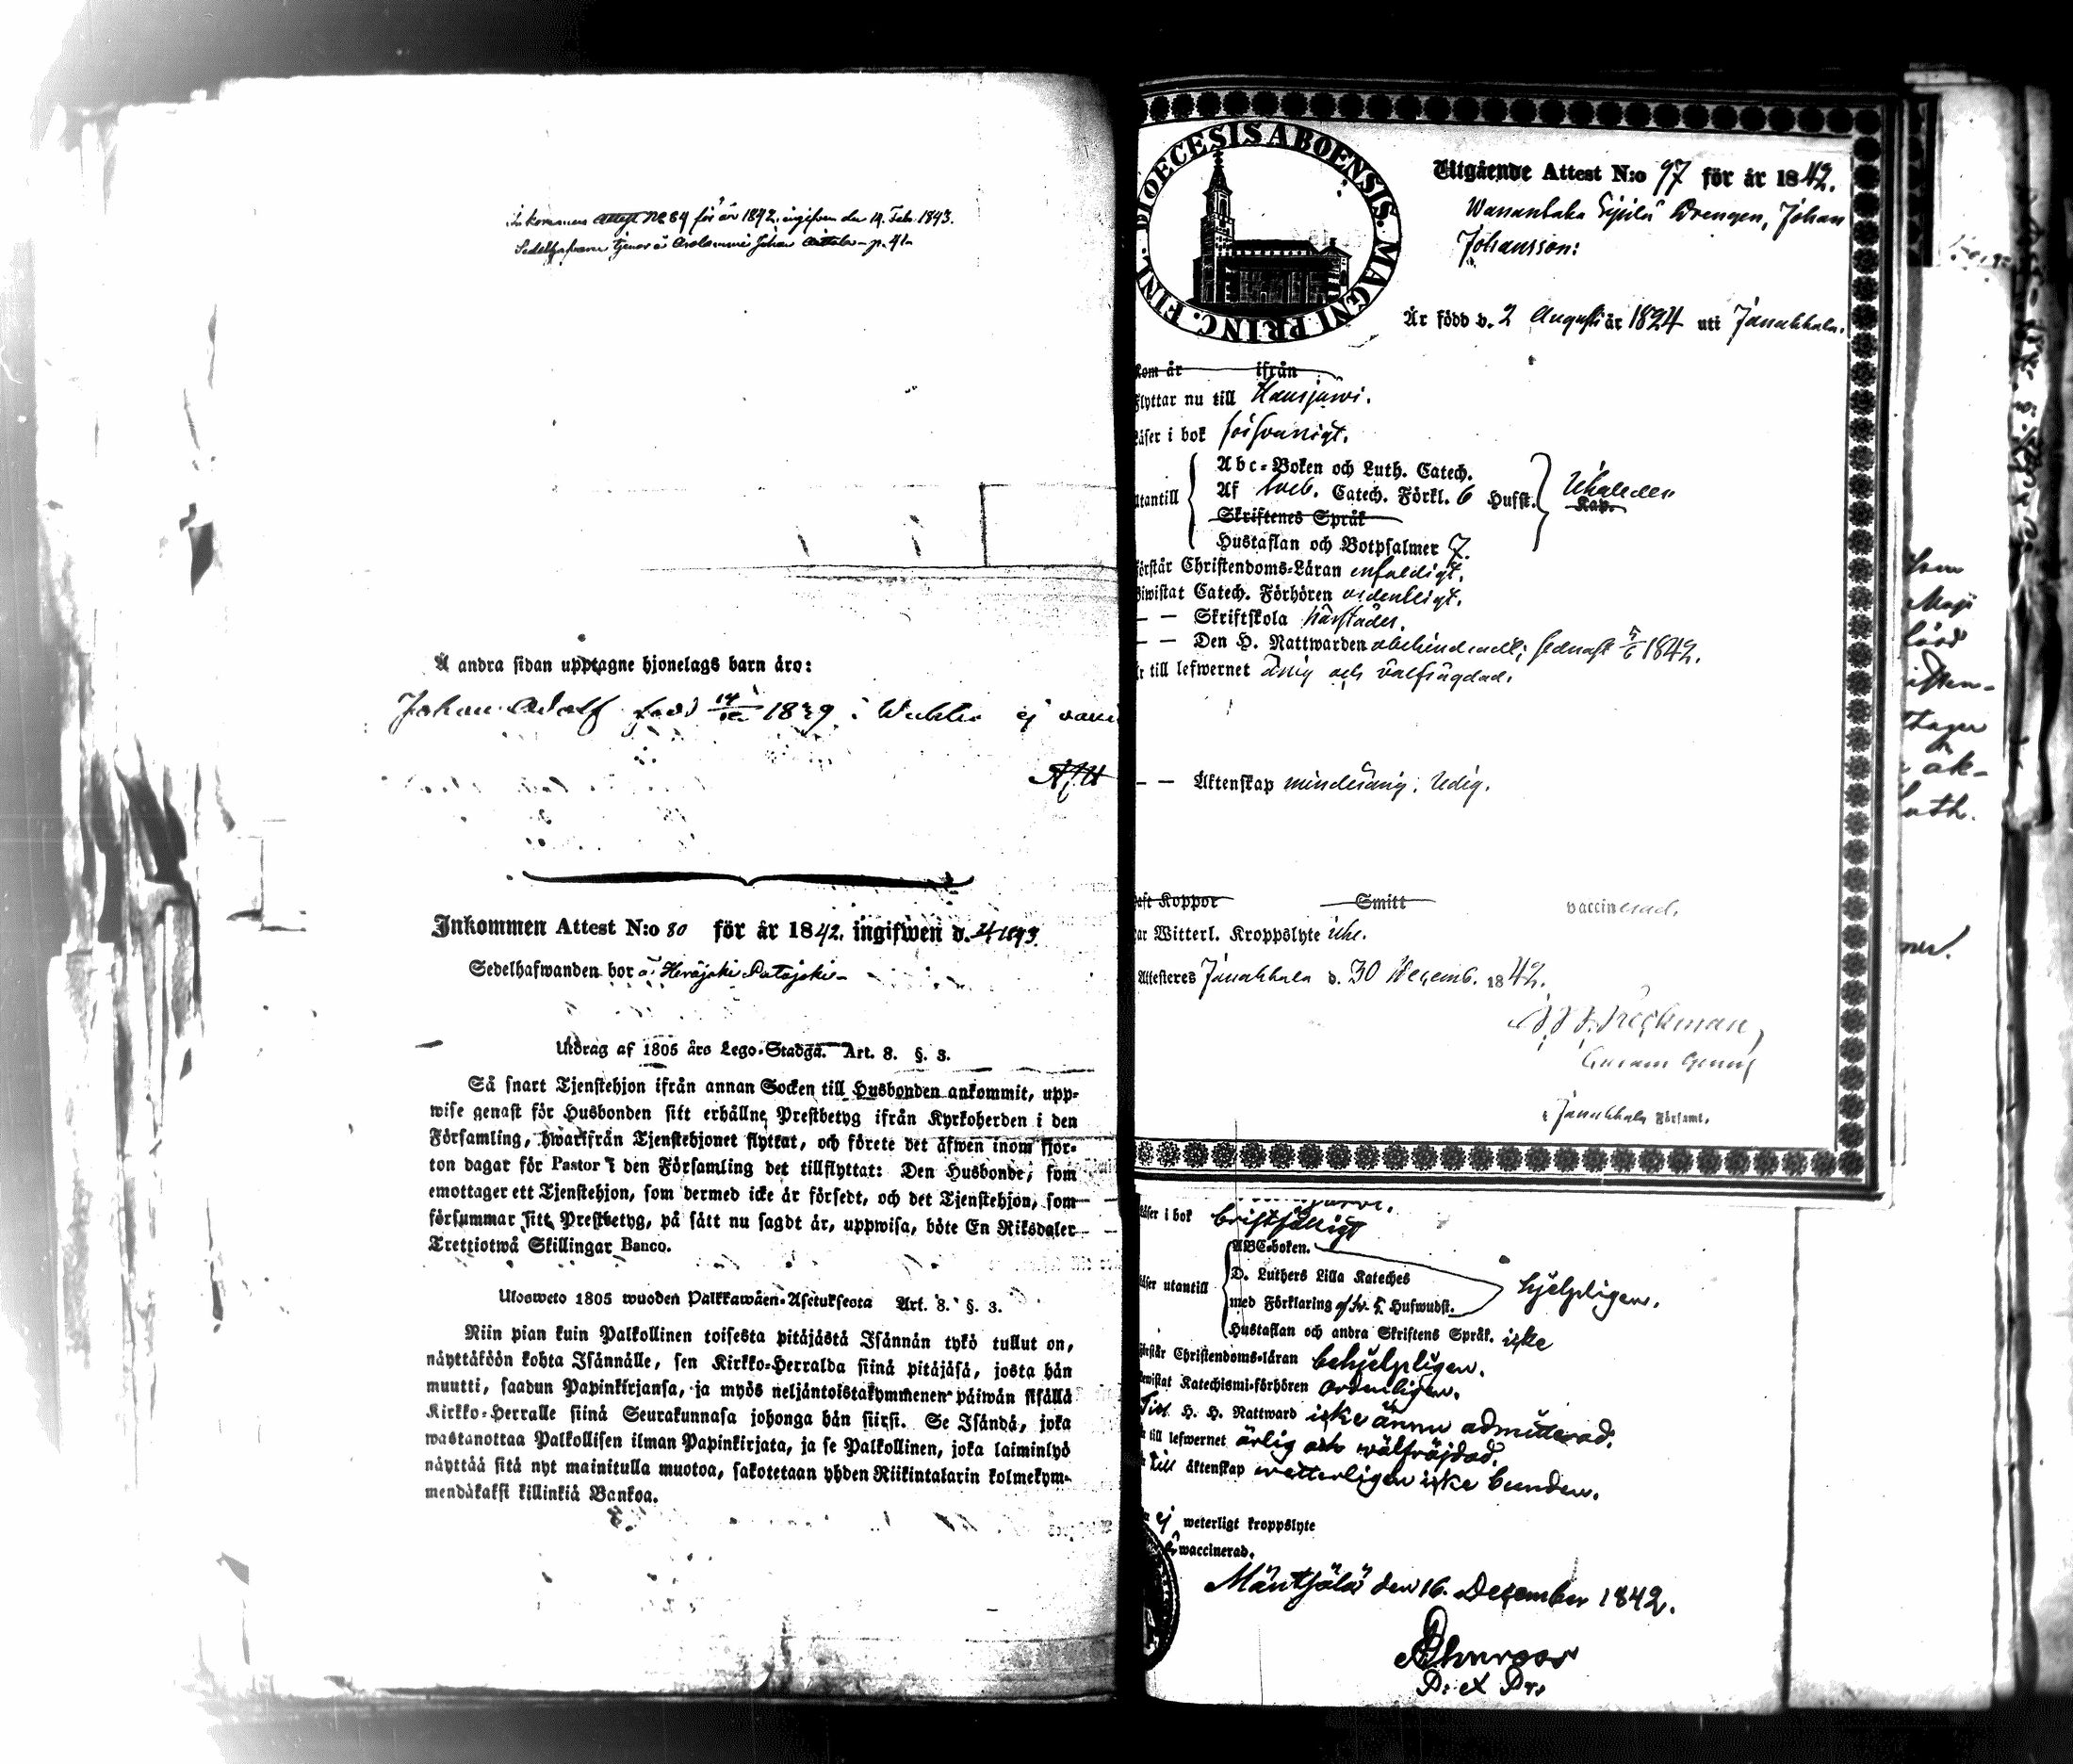 Inkommen Attest No 84 för år 1842. ingifven den 14. Febr. 1843.
Sedelhafvaren tjenar å Johan p. 41
Å andra sidan upptagne hjonelags barn äro:
Johan Adolf född 1839 i ej
Inkommen Attest N:o 80 för år 1842. ingifwen d. 1843.
Sedelhafwanden bor å
Utdrag af 1805 års Lego-Stadga. Art. 8. §. 3.
Så snart Tjenstehjon ifrån annan Socken till Husbonden ankommit, upp-
wise genast för Husbonden sitt erhållne Prestbetyg ifrån Kyrkoherden i den
Församling, hwarifrån Tjenstehjonet flyttat, och förete det äfwen inom fjor-
ton dagar för Pastor i den Församling det tillflyttat: Den Husbonde, som
emottager ett Tjenstehjon, som dermed icke är försedt, och det Tjenstehjon, som
försummar sitt Prestbetyg, på sätt nu sagdt är, uppwisa, böte En Riksdaler
Trettiotwå Skillingar Banco.
Ulosweto 1805 wuoden Palkkawäen-Asetuksesta Art. 8. §. 3.
Niin pian kuin Palkollinen toisesta pitäjästä Isännän tykö tullut on,
näyttäköön kohta Isännälle, sen Kirkko-Herralda siinä pitäjäsä, josta hän
muutti, saadun Papinkirjansa, ja myös neljäntoistakymmenen päiwän sisällä
Kirkko-Herralle siinä Seurakunnasa johonga hän siirsi. Se Isändä, joka
wastanottaa Palkollisen ilman Papinkirjata, ja se Palkollinen, joka laiminlyö
näyttää sitä nyt mainitulla muotoa, sakotetaan yhden Riikintalarin kolmekym-
mendäkaksi killinkiä Bankoa.
DIOECESIS ABOENSIS. MAGNI PRINC. FINL.
Utgående Attest N:o 97 för år 1842.
Drengen, Johan
Johansson:
Är född d. 2 Augusti år 1824 uti Janakkala.
kom år ifrån
flyttar nu till Hausjärvi.
läser i bok försvarligt.
utantill
Abc-Boken och Luth. Catech.
Af Sveb. Catech. Förkl. 6 Hufst.
Skriftenes Språk
Hustaflan och Botpsalmer 7.
Kap.
förstår Christendoms-Läran enfaldigt.
biwistat Catech. Förhören ordentligt.
– – Skriftskola härstädes.
– – Den H. Nattwarden obehindradt; sednast 1842.
är till lefwernet ärlig och välfrägdad.
– – Äktenskap minderårig. ledig.
haft Koppor Smitt vaccinerad.
har Witterl. Kroppslyte icke.
Attesteres Janakkala d. 30 Decemb. 1842.
i Janakkala Församl.
läser i bok bristfälligt
ABC-boken.
läser utantill
D. Luthers Lilla Kateches
med Förklaring af Sv. 5 Hufwudst.
hjelpligen.
Hustaflan och andra Skriftens Språk. icke
förstår Christendoms-läran behjelpligen.
bewistat Katechismi-förhören ordentligen.
Till H. H. Nattward icke ännu admitterad.
är till lefwernet ärlig och wälfräjdad.
är till äktenskap wetterligen icke bunden.
ej weterligt kroppslyte
är waccinerad.
Mäntsälä den 16. December 1842.